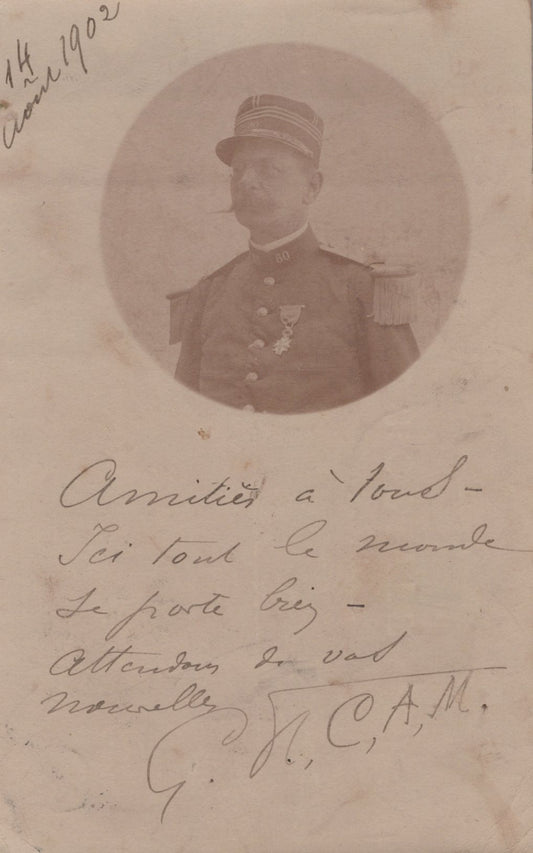 14
Août 1902
80
Amitiés à tous -
Ici tout le monde
se porte bien -
Attendons de vos
nouvelles
G. H, C, A, M.